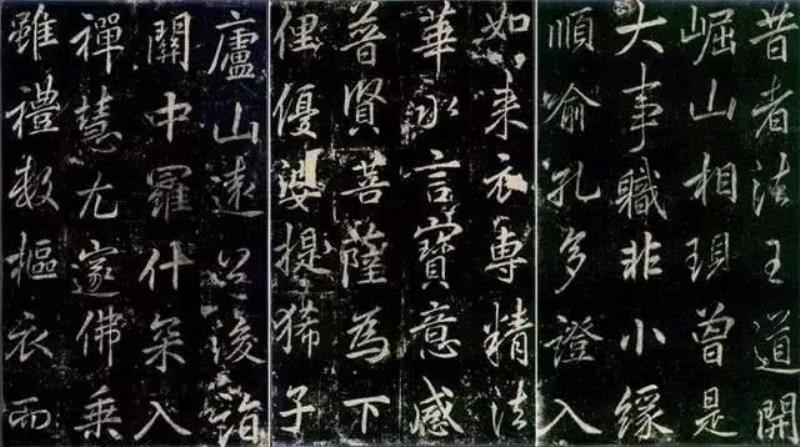 昔者法王道開
崛山相現曾是
大事職非小緣
順俞孔多證入
如来衣專精法
華永言寶意感
普賢菩薩為下
俚優婆提狶子
廬山遠公後詣
關中羅什罙入
禪慧尤邃佛乘
雖禮数樞衣而